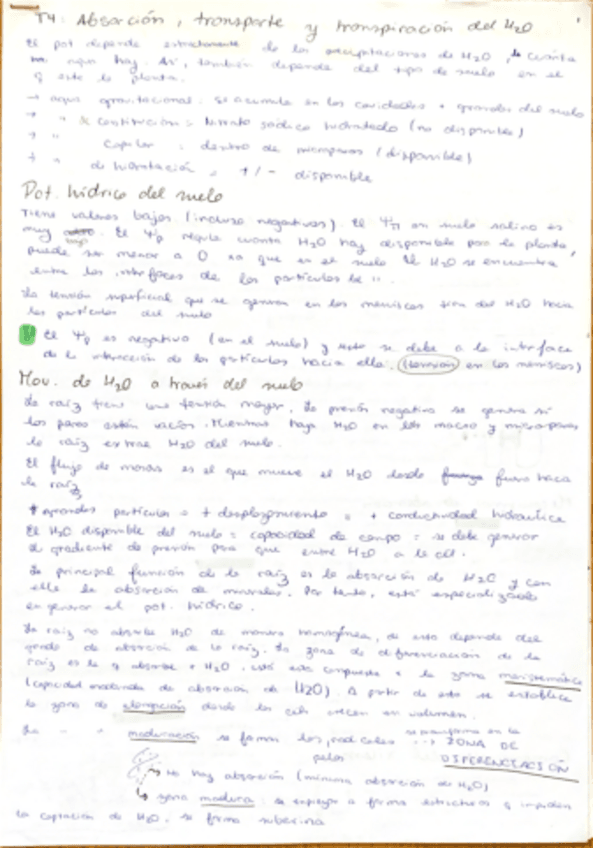 T4: Absorción, transporte y transpiración del H2O
El pot depende estrictamente de las precipitaciones de H2O, la cuánta
agua hay. Así, también depende del tipo de suelo en el
q esté la planta.
→ agua gravitacional: se acumula en las cavidades + grandes del suelo
→ " de constitución = Nitrato sódico hidratado (no disponible)
→ " capilar : dentro de microporos (disponible)
+ " de hidratación = +/- disponible
Pot. hídrico del suelo
Tiene valores bajos (incluso negativos). El Ψπ en suelo salino es
muy bajo. El Ψp regula cuanta H2O hay disponible para la planta,
puede ser menor a 0 ya que en el suelo el H2O se encuentra
entre las interfaces de las partículas
La tensión superficial que se genera en los meniscos tira del H2O hacia
las partículas del suelo
El Ψp es negativo (en el suelo) y esto se debe a la interface
de la interacción de las partículas hacia ella. (tensión en los meniscos)
Mov. de H2O a través del suelo
La raíz tiene una tensión mayor. La presión negativa se genera si
los poros están vacíos. Mientras haya H2O en los macro y microporos
la raíz extrae H2O del suelo.
El flujo de masas es el que mueve el H2O desde fuera hacia
la raíz
+ grandes partículas = + desplazamiento = + conductividad hidráulica
El H2O disponible del suelo = capacidad de campo = se debe generar
el gradiente de presión para que entre H2O a la cél.
La principal función de la raíz es la absorción de H2O y con
ella la absorción de minerales. Por tanto, está especializada
en generar el pot. hídrico.
La raíz no absorbe H2O de manera homogénea, de esto depende del
grado de absorción de la raíz. La zona de diferenciación de la
raíz es la q absorbe + H2O. está compuesta x la zona meristemática
(capacidad moderada de absorción de H2O). A partir de esto se establece
la zona de elongación donde las cél crecen en volumen.
La " " maduración se forman los radicales → ZONA DE
pelos DIFERENCIACIÓN
no hay absorción (mínima absorción de H2O)
zona madura: se empieza a formar estructuras q impiden
la captación de H2O. se forma suberina